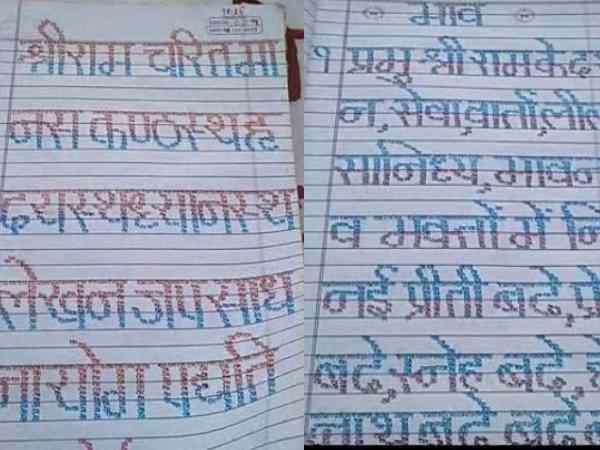 श्रीराम चरितमा
नस कण्ठस्थ ह
दयस्थ ध्यानस्थ
लेखन जप साध
भाव
१ प्रभु श्री राम के द
न, सेवा, वार्ता, ली
सानिध्य, भाव
व भक्तों में नि
नई प्रीती बढे, प्रे
बढे, स्नेह बढे,
बढे